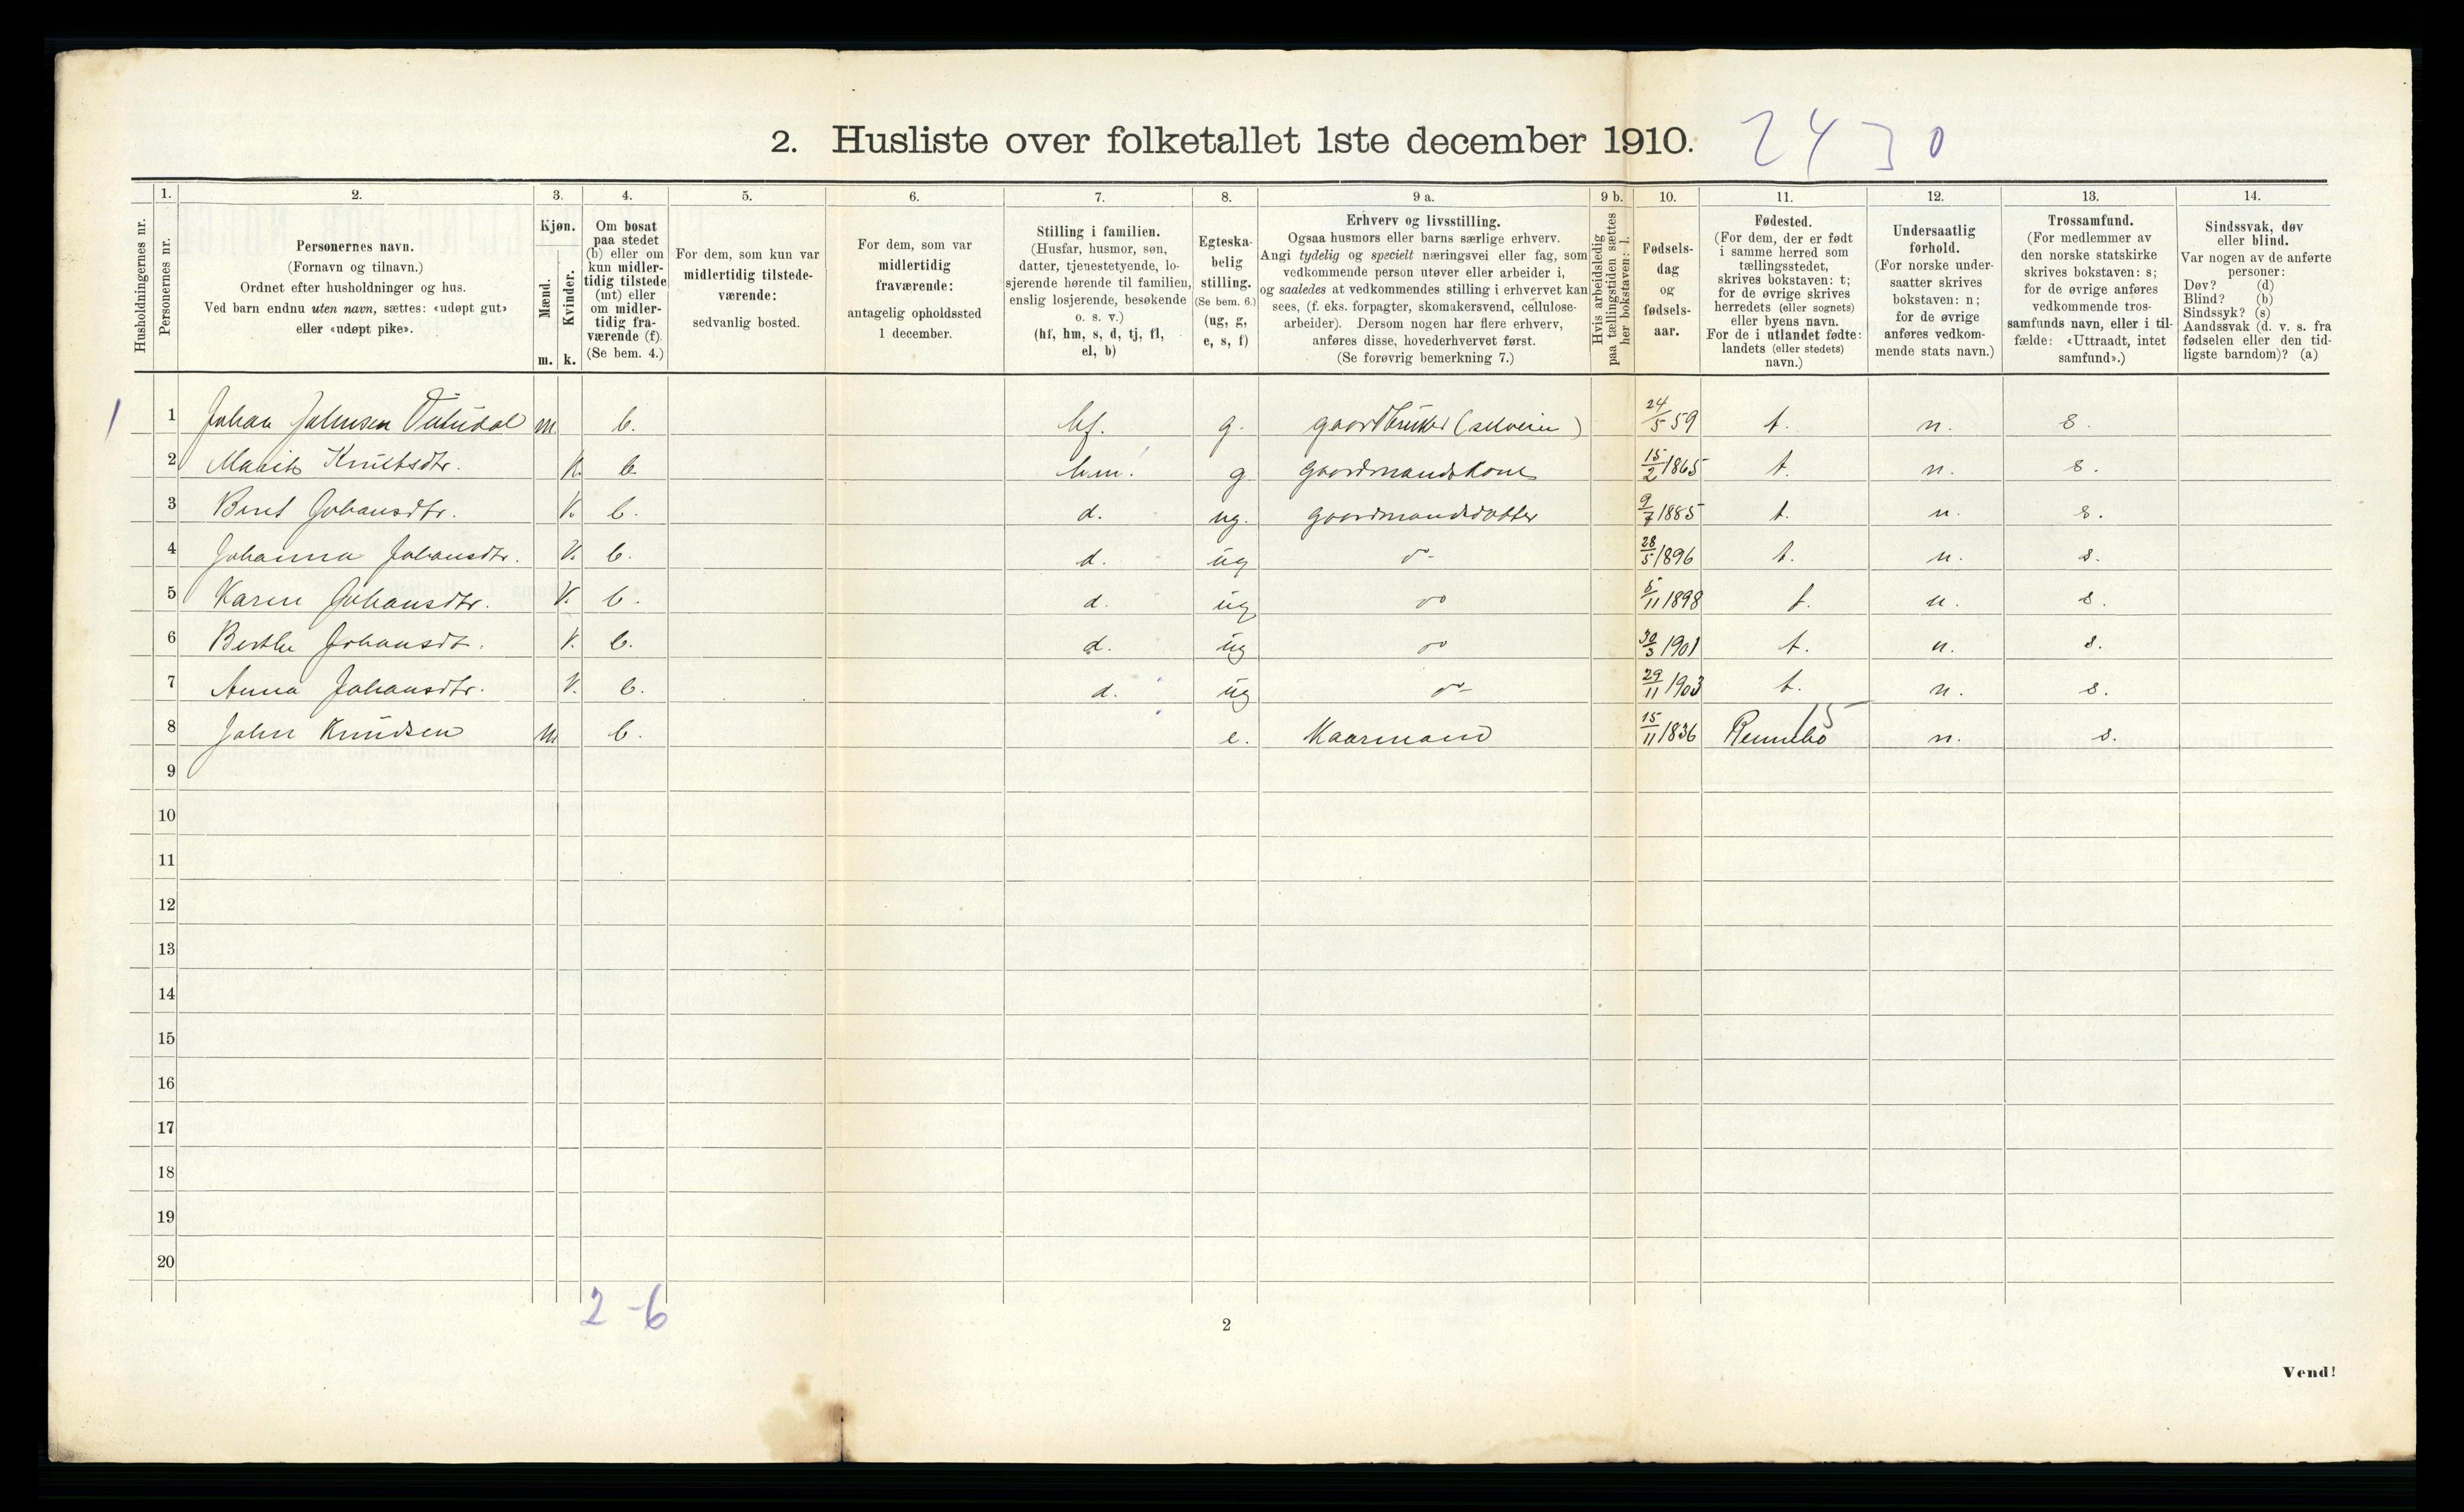 2. Husliste over folketallet 1ste december 1910. 2430
1. 2. 3. 4. 5. 6. 7. 8. 9 a. 9 b. 10. 11. 12. 13. 14.
Husholdningernes nr.
Personernes nr.
Personernes navn.
(Fornavn og tilnavn.)
Ordnet efter husholdninger og hus.
Ved barn endnu uten navn, sættes: «udøpt gut»
eller «udøpt pike».
Kjøn.
Mænd.
Kvinder.
m. k.
Om bosat
paa stedet
(b) eller om
kun midler-
tidig tilstede
(mt) eller
om midler-
tidig fra-
værende (f).
(Se bem. 4.)
For dem, som kun var
midlertidig tilstede-
værende:
sedvanlig bosted.
For dem, som var
midlertidig
fraværende:
antagelig opholdssted
1 december.
Stilling i familien.
(Husfar, husmor, søn,
datter, tjenestetyende, lo-
sjerende hørende til familien,
enslig losjerende, besøkende
o. s. v.)
(hf, hm, s, d, tj, fl,
el, b)
Egteska-
belig
stilling.
(Se bem. 6.)
(ug, g,
e, s, f)
Erhverv og livsstilling.
Ogsaa husmors eller barns særlige erhverv.
Angi tydelig og specielt næringsvei eller fag, som
vedkommende person utøver eller arbeider i,
og saaledes at vedkommendes stilling i erhvervet kan
sees, (f. eks. forpagter, skomakersvend, cellulose-
arbeider). Dersom nogen har flere erhverv,
anføres disse, hovederhvervet først.
(Se forøvrig bemerkning 7.)
Hvis arbeidsledig
paa tællingstiden sættes
her bokstaven: l.
Fødsels-
dag
og
fødsels-
aar.
Fødested.
(For dem, der er født
i samme herred som
tællingsstedet,
skrives bokstaven: t;
for de øvrige skrives
herredets (eller sognets)
eller byens navn.
For de i utlandet fødte:
landets (eller stedets)
navn.)
Undersaatlig
forhold.
(For norske under-
saatter skrives
bokstaven: n;
for de øvrige
anføres vedkom-
mende stats navn.)
Trossamfund.
(For medlemmer av
den norske statskirke
skrives bokstaven: s;
for de øvrige anføres
vedkommende tros-
samfunds navn, eller i til-
fælde: «Uttraadt, intet
samfund».)
Sindssvak, døv
eller blind.
Var nogen av de anførte
personer:
Døv? (d)
Blind? (b)
Sindssyk? (s)
Aandssvak (d. v. s. fra
fødselen eller den tid-
ligste barndom)? (a)
1 1 Johan Johnsen m b. hf. g. gaardbruker (selveier) 24/5 59 t. n. s.
2 Marit Knutsdtr. k. b. hm. g gaardmandskone 15/2 1865 t. n. s.
3 Berit Johansdtr. k. b. d. ug. gaardmandsdatter 9/7 1885 t. n. s.
4 Johanna Johansdtr. k. b. d. ug do 28/5 1896 t. n. s.
5 Karen Johansdtr. k. b. d. ug do 5/11 1898 t. n. s.
6 Berthe Johansdt. k. b. d. ug do 30/3 1901 t. n. s.
7 Anna Johansdtr. k. b. d. ug do 29/11 1903 t. n. s.
8 John Knudsen m b. e. Kaarmand 15/11 1836 Rennebo 15 n. s.
9
10
11
12
13
14
15
16
17
18
19
20
2-6
2
Vend!